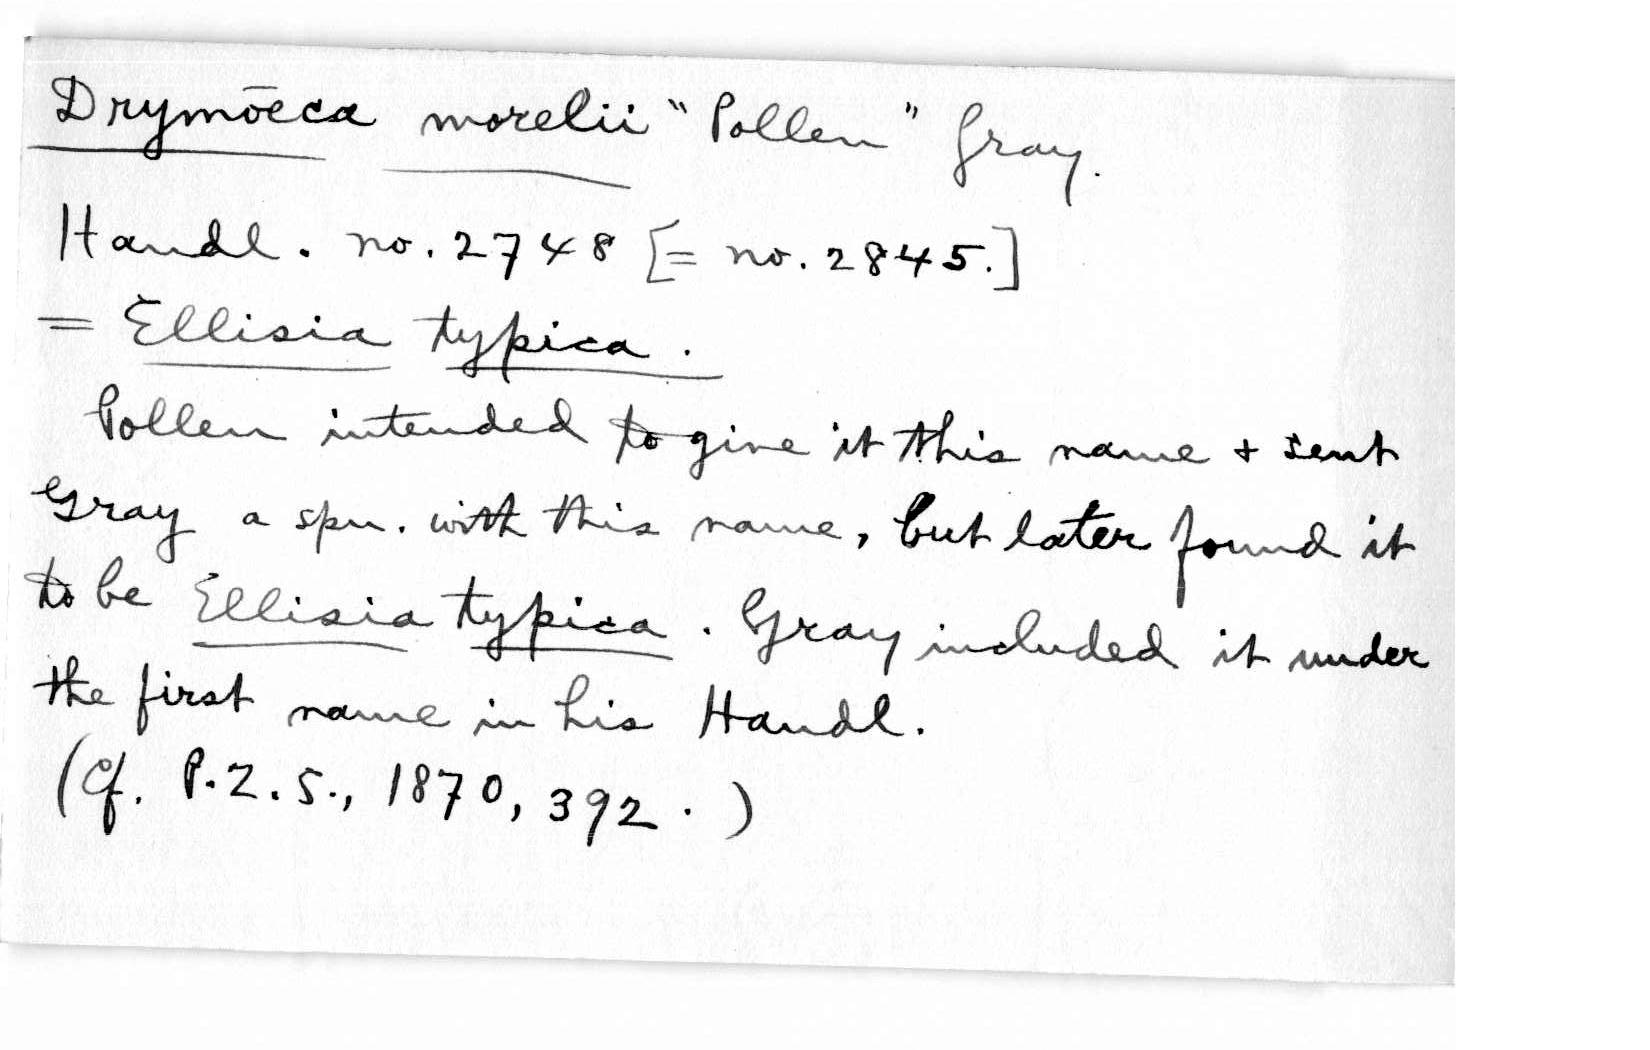 Drymōeca morelii "Pollen" Gray.
Handl. no. 2748 [= no. 2845.]
= Ellisia typica.
Pollen intended to give it this name + sent
Gray a spn. with this name, but later found it
to be Ellisia typica. Gray included it under
the first name in his Handl.
(Cf. P.Z.S., 1870, 392.)